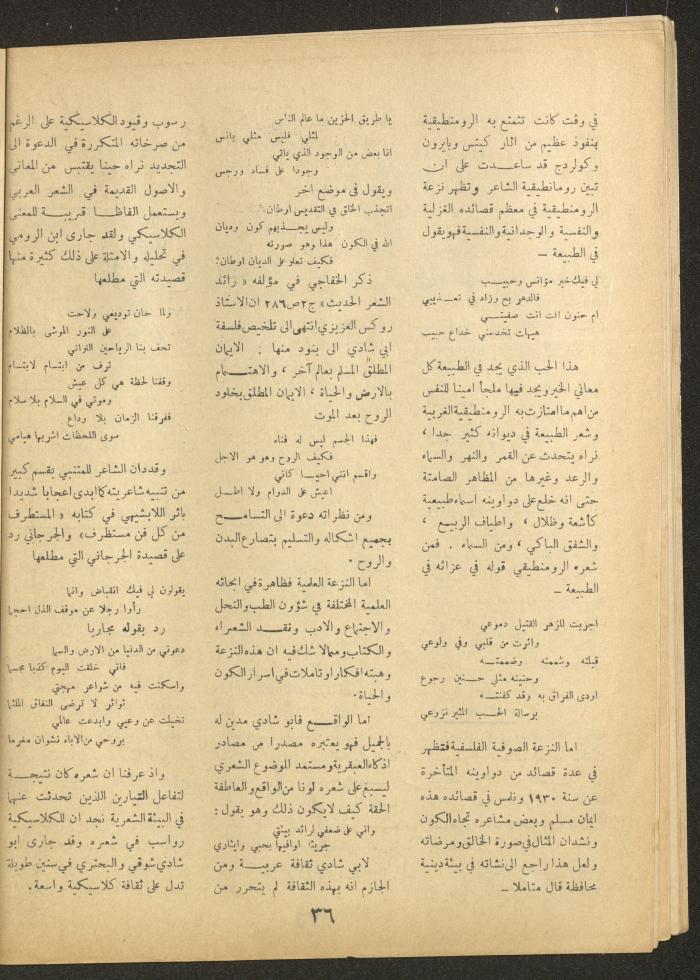 في وقت كانت تتمتع به الرومنطيقية
بنفوذ عظيم من اثار كيتس وبايرون
وكولردج قد ساعدت على ان
تبين رومانطيقية الشاعر وتظهر نزعة
الرومنطيقية في معظم قصائده الغزلية
والنفسية والوجدانية والنفسية فهو يقول
في الطبيعة ــ
لي فيك خير مؤانس وحبيب
فالدهر بح وزاد في تعذيبي
ام حنون انت انت صفيتي
هيهات تخدعني خداع حبيب
هذا الحب الذي يجد في الطبيعة كل
معاني الخير ويجد فيها ملجأ امينا للنفس
من اهم ما امتازت به الرومنطيقية الغربية
وشعر الطبيعة في ديوانه كثير جدا ،
نراه يتحدث عن القمر والنهر والسماء
والرعد وغيرها من المظاهر الصامتة
حتى انه خلع على دواوينه اسماء طبيعية
كأشعة وظلال ، واطياف الربيع ،
والشفق الباكي ، ومن السماء . فمن
شعره الرومنطيقي قوله في عزائه في
الطبيعة ــ
اجريت للزهر القتيل دموعي
واثرت من قلبي وفي ولوعي
قبلته وشممته وضممته
وحنينه مثلي حنين رجوع
اودى الفراق به وقد كفنته
برسالة الحب المثير نزوعي
اما النزعة الصوفية الفلسفية فتظهر
في عدة قصائد من دواوينه المتأخرة
عن سنة ١٩٣٠ ونلمس في قصائده هذه
ايمان مسلم وبعض مشاعره تجاه الكون
ونشدان المثال في صورة الخالق ومرضاته
ولعل هذا راجع الى نشاته في بيئة دينية
محافظة قال متاملا ــ
يا طريق الحزين ما عالم الناس
لمثلي فليس مثلي بانس
انا بعض من الوجود الذي ياتي
وجودا على فساد ورجس
ويقول في موضع اخر
اتجذب الخلق في التقديس اوطان
وليس يجذبهم كون وديان
الله في الكون هذا وهو صورته
فكيف تعلو على الديان اوطان؟
ذكر الخفاجي في مؤلفه « رائد
الشعر الحديث » ج٢ ص ٢٨٦ ان الاستاذ
روكس العزيزي انتهى الى تلخيص فلسفة
ابي شادي الى بنود منها : الايمان
المطلق المسلم بعالم آخر ، والاهتمام
بالارض والحياة ، الايمان المطلق بخلود
الروح بعد الموت
فهذا الجسم ليس له فناء
فكيف الروح وهو هو الاجل
واقسم انني احيا كاني
اعيش على الدوام ولا اظل
ومن نظراته دعوة الى التسامح
بجميع اشكاله والتسليم بتصارع البدن
والروح .
اما النزعة العلمية فظاهرة في ابحاثه
العلمية المختلفة في شؤون الطب والنحل
والاجتماع والادب ونقد الشعراء
والكتاب ومما لا شك فيه ان هذه النزعة
وهبته افكارا وتاملات في اسرار الكون
والحياة .
اما الواقع فابو شادي مدين له
بالجميل فهو يعتبره مصدرا من مصادر
اذكاء العبقرية ومستمد الموضوع الشعري
ليسبغ على شعره لونا من الواقع والعاطفة
الحقة كيف لا يكون ذلك وهو يقول :
واني على ضعفي لرائد بيئتي
جوبتا اوافيها بحبي وايثاري
لابي شادي ثقافة عربية ومن
الجازم انه بهذه الثقافة لم يتحرر من
رسوب وقيود الكلاسيكية على الرغم
من صرخاته المتكررة في الدعوة الى
التجديد نراه حينا يقتبس من المعاني
والاصول القديمة في الشعر العربي
ويستعمل الفاظا قريبة للمعنى
الكلاسيكي ولقد جارى ابن الرومي
في تحليله والامثلة على ذلك كثيرة منها
قصيدته التي مطلعها
ولما حان توديعي ولاحت
على النور الموشى بالظلام
تحف بنا الرياحين اللواتي
ترف من ابتسام لابتسام
وقفنا لحظة هي كل عيش
وموتي في السلام بلا سلام
ففرقنا الزمان بلا وداع
سوى اللحظات اشربها هيامي
وقد دان الشاعر للمتنبي بقسم كبير
من تنبيه شاعريته كما ابدى اعجابا شديدا
باثر اللابشيهي في كتابه « المستطرف
من كل فن مستظرف » والجرجاني رد
على قصيدة الجرجاني التي مطلعها
يقولون لي فيك انقباض وانما
رأوا رجلا عن موقف الذل احجما
رد بقوله مجاريا
دعوني من الدنيا من الارض والسما
فاني خلقت اليوم كذبا مجسما
واسكنت فيه من شواعر مهجتي
نوائر لا ترضى النفاق الملثما
تخيلت عن وعيي وابدعت عالمي
بروحي من الاباء نشوان مغرما
واذ عرفنا ان شعره كان نتيجة
لتفاعل التيارين اللذين تحدثت عنهما
في البيئة الشعرية نجد ان للكلاسيكية
رواسب في شعره وقد جارى ابو
شادي شوقي والبحتري في سنين طويلة
تدل على ثقافة كلاسيكية واسعة.
٣٦